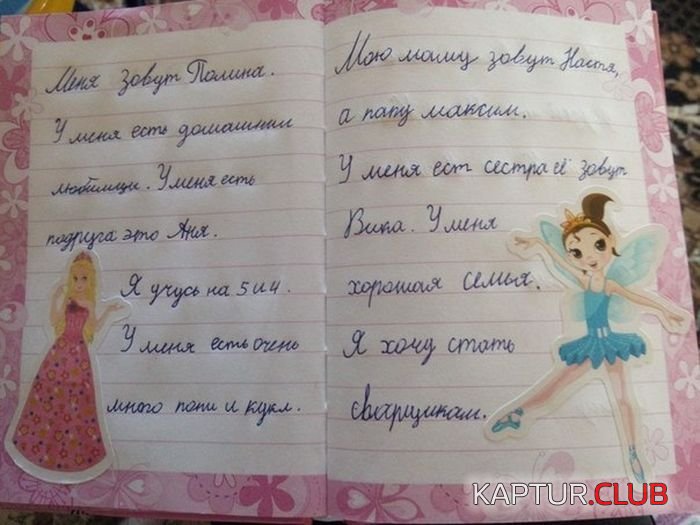 Меня зовут Полина.
У меня есть домашнии
любимци. У меня есть
подруга это Аня.
Я учусь на 5 и 4.
У меня есть очень
много пони и кукл.
Мою маму зовут Настя,
а папу максим.
У меня ест сестра её зовут
Вика. У меня
хорошая семья.
Я хочу стать
сварщикам.
KAPTUR.CLUB